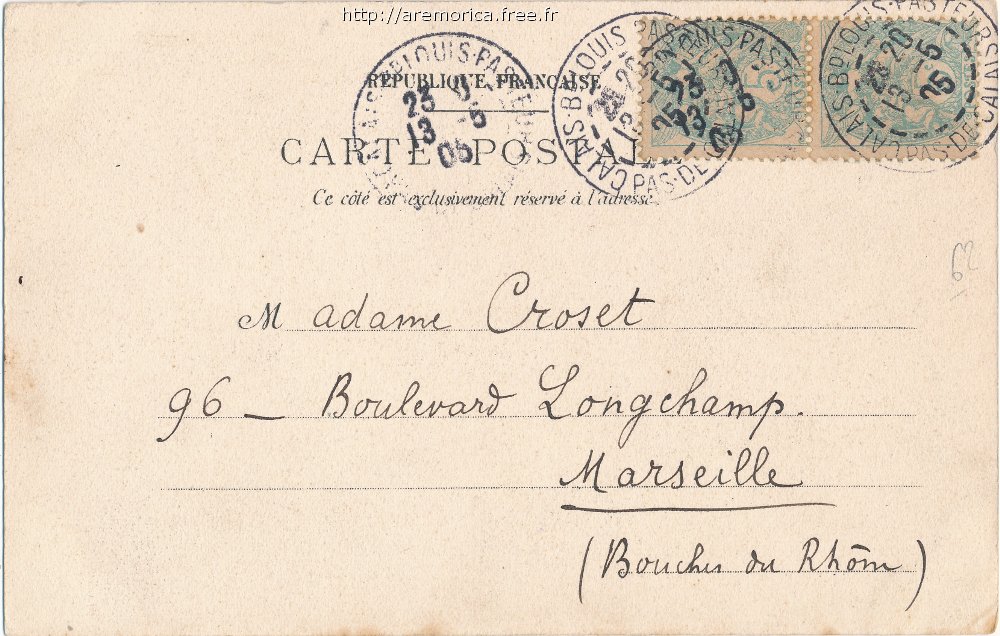 http://aremorica.free.fr
CALAIS-BD LOUIS-PASTEUR
23 5
13 -5
05
CALAIS-BD LOUIS PASTEUR
PAS-DE-CALAIS
CALAIS-BD LOUIS-PASTEUR
PAS-DE-CALAIS
20
13 -5
05
RÉPUBLIQUE FRANÇAISE
CARTE POSTALE
Ce côté est exclusivement réservé à l'adresse
62
Madame Croset
96 — Boulevard Longchamp.
Marseille
(Bouches du Rhône)